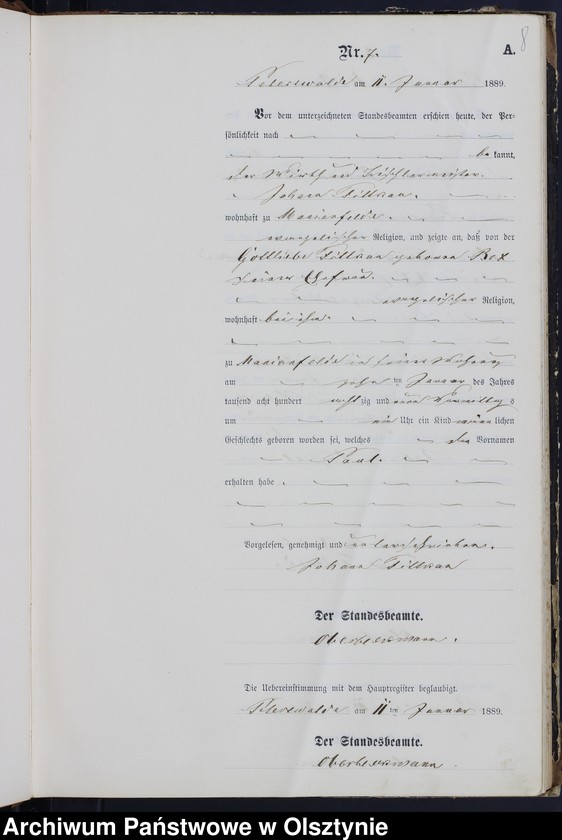 8
Nr. 7.
A.
Peterswalde am 11. Januar 1889.
Vor dem unterzeichneten Standesbeamten erschien heute, der Per-
sönlichkeit nach
be kannt,
der Wirth und Tischlermeister
Johann Dittman.
wohnhaft zu Marienfelde.
evangelischer Religion, und zeigte an, daß von der
Gottliebe Dittman geborenen
seiner Ehefrau.
evangelischer Religion,
wohnhaft bei ihm.
zu Marienfelde in seiner Wohnung
am zehn ten Januar des Jahres
tausend acht hundert acht zig und neun Vormittag s
um Uhr ein Kind männ lichen
Geschlechts geboren worden sei, welches den Vornamen
Paul.
erhalten habe
Vorgelesen, genehmigt und unterschrieben.
Johann Dittman
Der Standesbeamte.
Die Uebereinstimmung mit dem Hauptregister beglaubigt.
Peterswalde am 11 ten Januar 1889.
Der Standesbeamte.
Archiwum Państwowe w Olsztynie